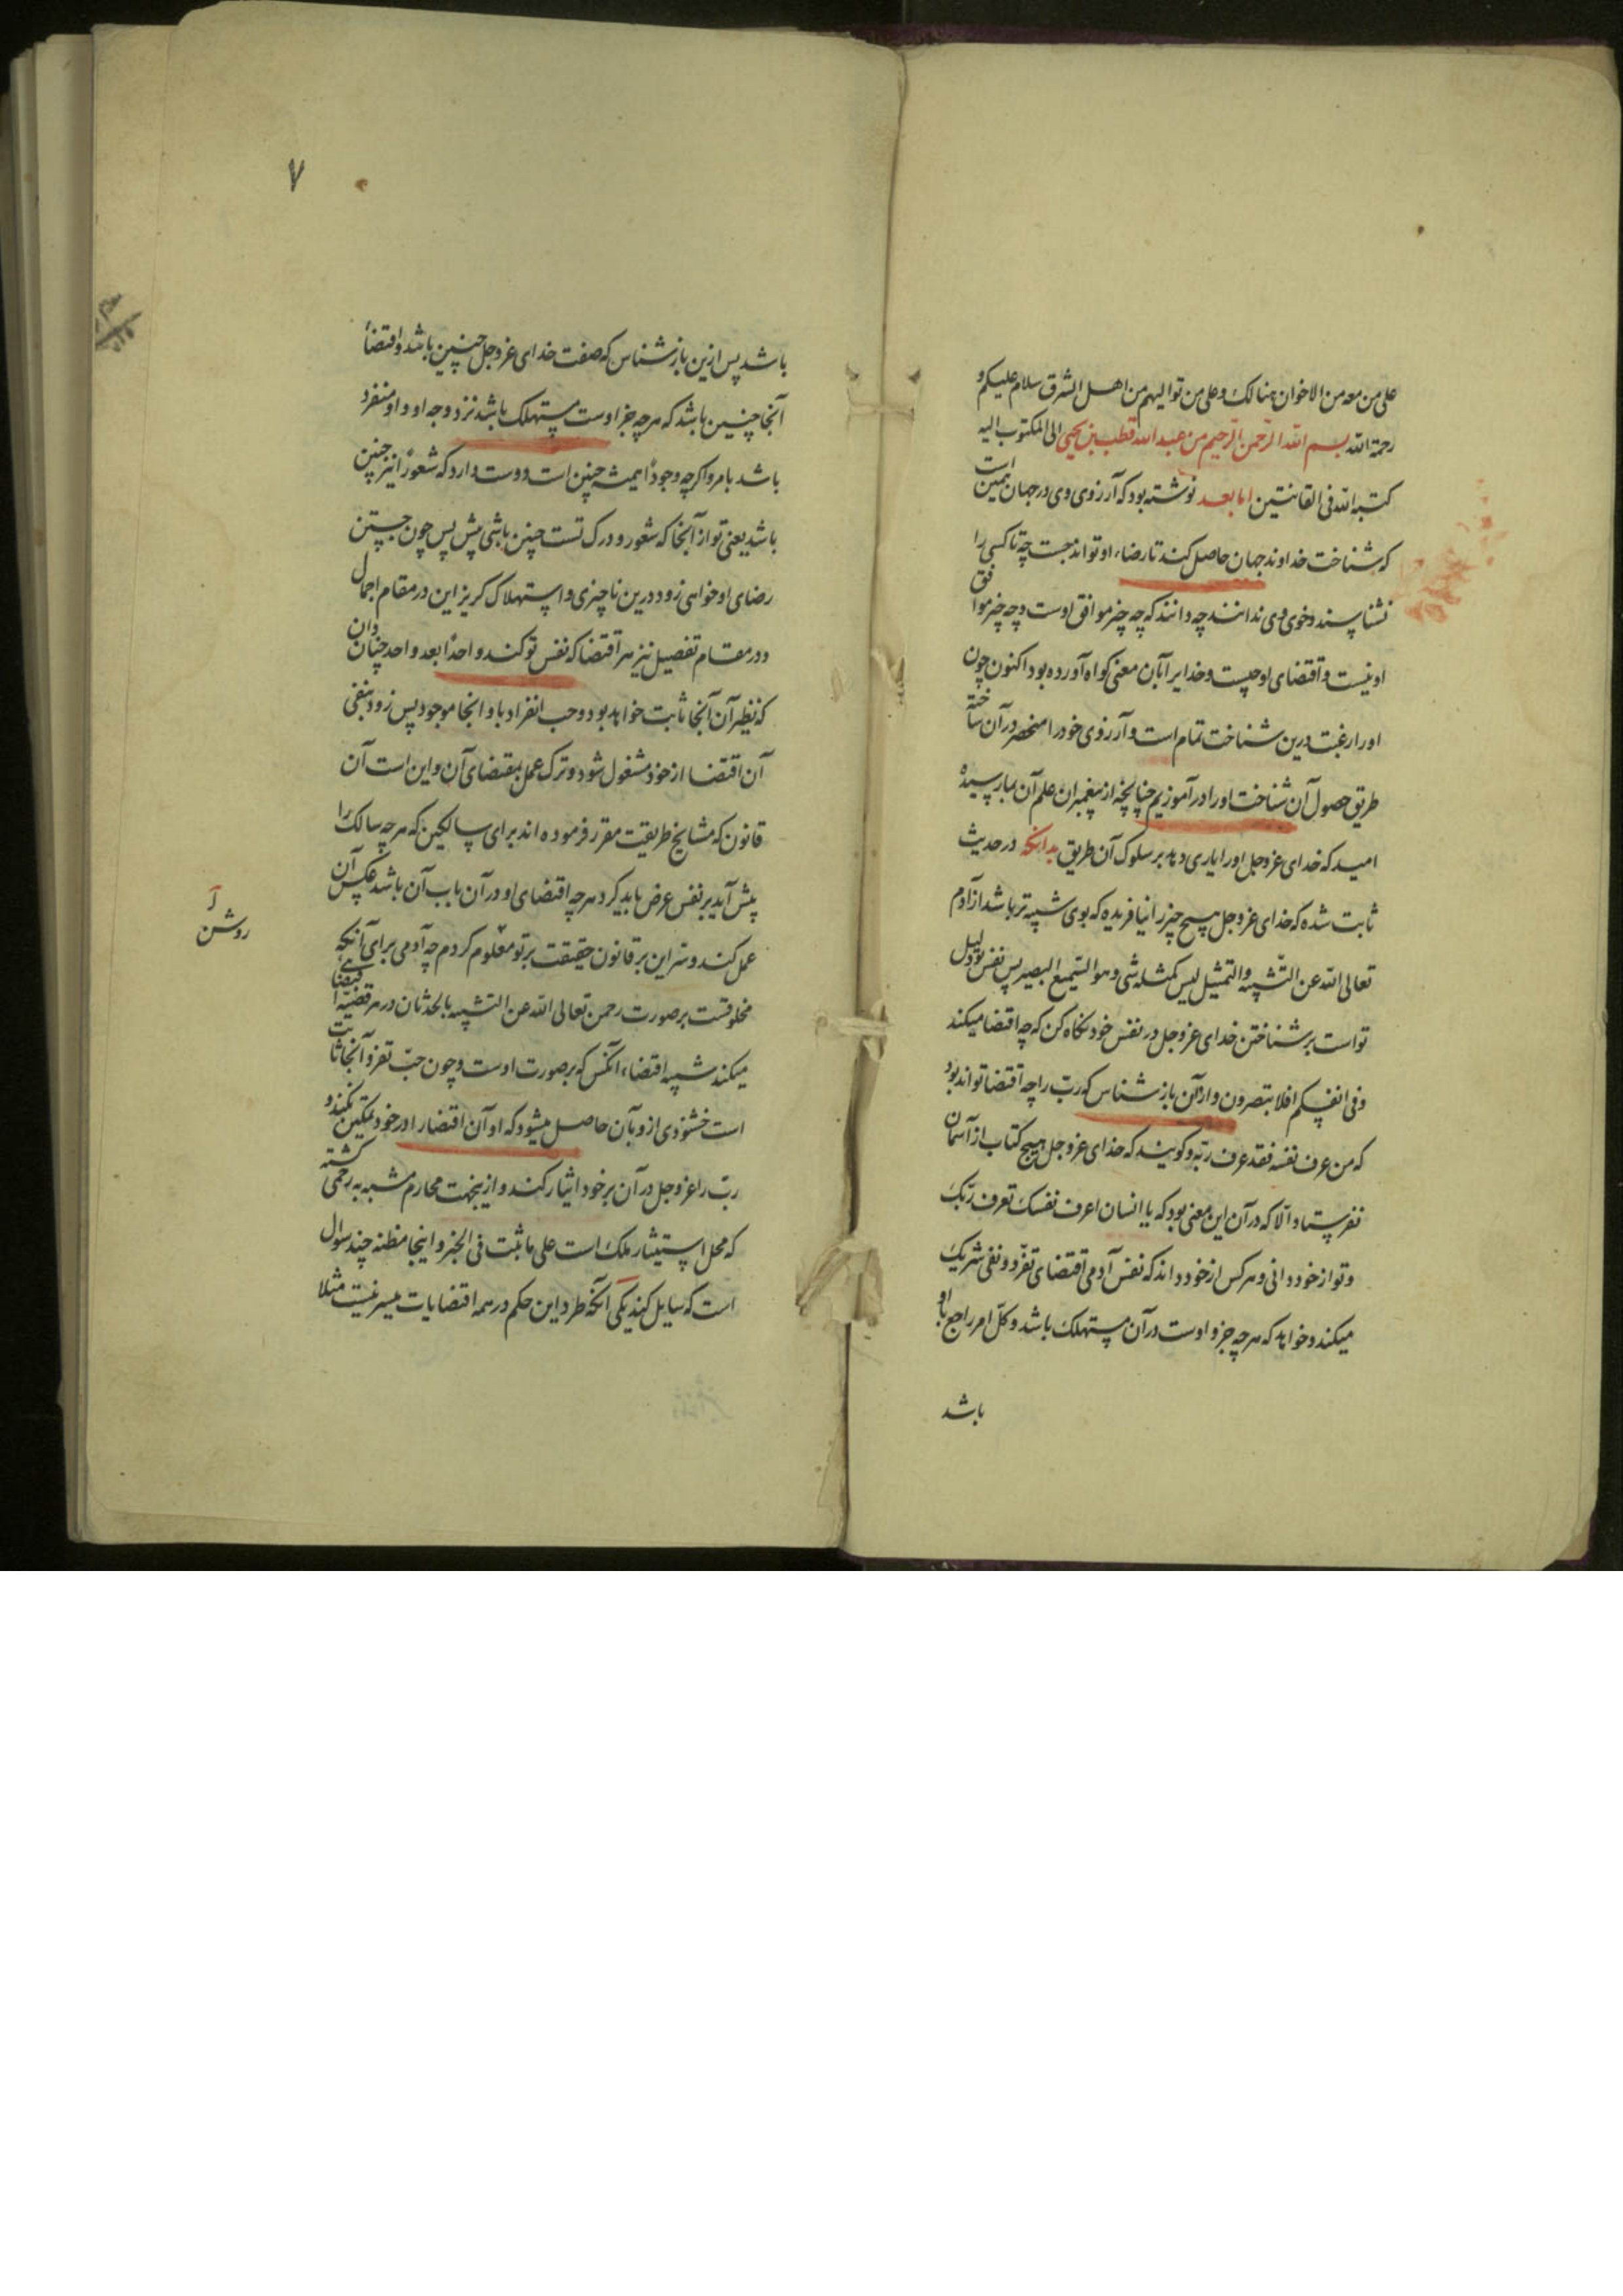 علی من معه من الاخوان هنالک و علی من توالیهم من اهل الشرق سلام علیکم و
رحمة الله بسم الله الرحمن الرحیم من عبدالله قطب بن یحیی الی المکتوب الیه
کتبه الله فی القانتین اما بعد نوشته بود که آرزوی وی در جهان همین است
که شناخت خداوند جهان حاصل کند تا رضاء او تواند جست چه تا کسی را
نشناسند و خوی وی ندانند چه دانند که چه چیز موافق اوست و چه چیز موافق
او نیست و اقتضای او چیست و خدایرا بآن معنی کواه آورده بود اکنون چون
او را رغبت درین شناخت تمام است و آرزوی خود را منحصر در آن ساخته
طریق حصول آن شناخت او را در آموزیم چنانچه از پیغمبران علم آن بما رسیده
امید که خدای عزوجل او را یاری دهد بر سلوک آن طریق بدانکه در حدیث
ثابت شده که خدای عزوجل هیچ چیز را نیافریده که بوی شبیه تر باشد از آدم
تعالی الله عن التشبیه و التمثیل لیس کمثله شی و هو السمیع البصیر پس نفس تو دلیل
تو است بر شناختن خدای عزوجل در نفس خود نکاه کن که چه اقتضا میکند
و فی انفسکم افلا تبصرون و از آن باز شناس که رب را چه اقتضا تواند بود
که من عرف نفسه فقد عرف ربه و کویند که خدای عزوجل هیچ کتاب از آسمان
نفرستاد الا که در آن این معنی بود که یا انسان اعرف نفسک تعرف ربک
و تو از خود دانی و هر کس از خود داند که نفس آدمی اقتضای تفرد و نفی شریک
میکند و خواهد که هر چه جز و اوست در آن مستهلک باشد و کل امر راجع باو
باشد
۷
باشد پس ازین باز شناس که صفت خدای عزوجل چنین باشد و اقتضاء
آنجا چنین باشد که هر چه جز اوست مستهلک باشد نزد وجه او و او منفرد
باشد بامر و اکرچه وجودا همیشه چنین است دوست دارد که شعورا نیز چنین
باشد یعنی تو از آنجا که شعور و درک تست چنین باشی پیش پس چون جستن
رضای او خواهی زود درین ناچیزی و استهلاک کریز این در مقام اجمال
و در مقام تفصیل نیز هر اقتضا که نفس تو کند واحدا بعد واحد چنان دان
که نظیر آن آنجا ثابت خواهد بود و حب انفراد باو آنجا موجود پس زود بنفی
آن اقتضا از خود مشغول شود و ترک عمل بمقتضای آن و این است آن
قانون که مشایخ طریقت مقرر فرموده اند برای سالکین که هر چه سالک را
پیش آید بر نفس عرض باید کرد هر چه اقتضای او در آن باب آن باشد عکس آن
عمل کند و سر این بر قانون حقیقت بر تو معلوم کردم چه آدمی برای آنکه
روشن
مخلوقست بر صورت رحمن تعالی الله عن التشبیه بالحدثان در هر قضیه اقتضایی
میکند شبیه اقتضاء آنکس که بر صورت اوست و چون حب تفرد آنجا ثابت
است خشنودی ازو بآن حاصل میشود که او آن اقتضا را در خود تمکین نکند و
رب را عزوجل در آن بر خود ایثار کند و ازینجهت محارم مشبه به رحمی کشته
که محل استیثار ملک است علی ما ثبت فی الخبر و اینجا مظنه چند سوال
است که سایل کند یکی آنکه طرد این حکم در همه اقتضایات میسر نیست مثلا